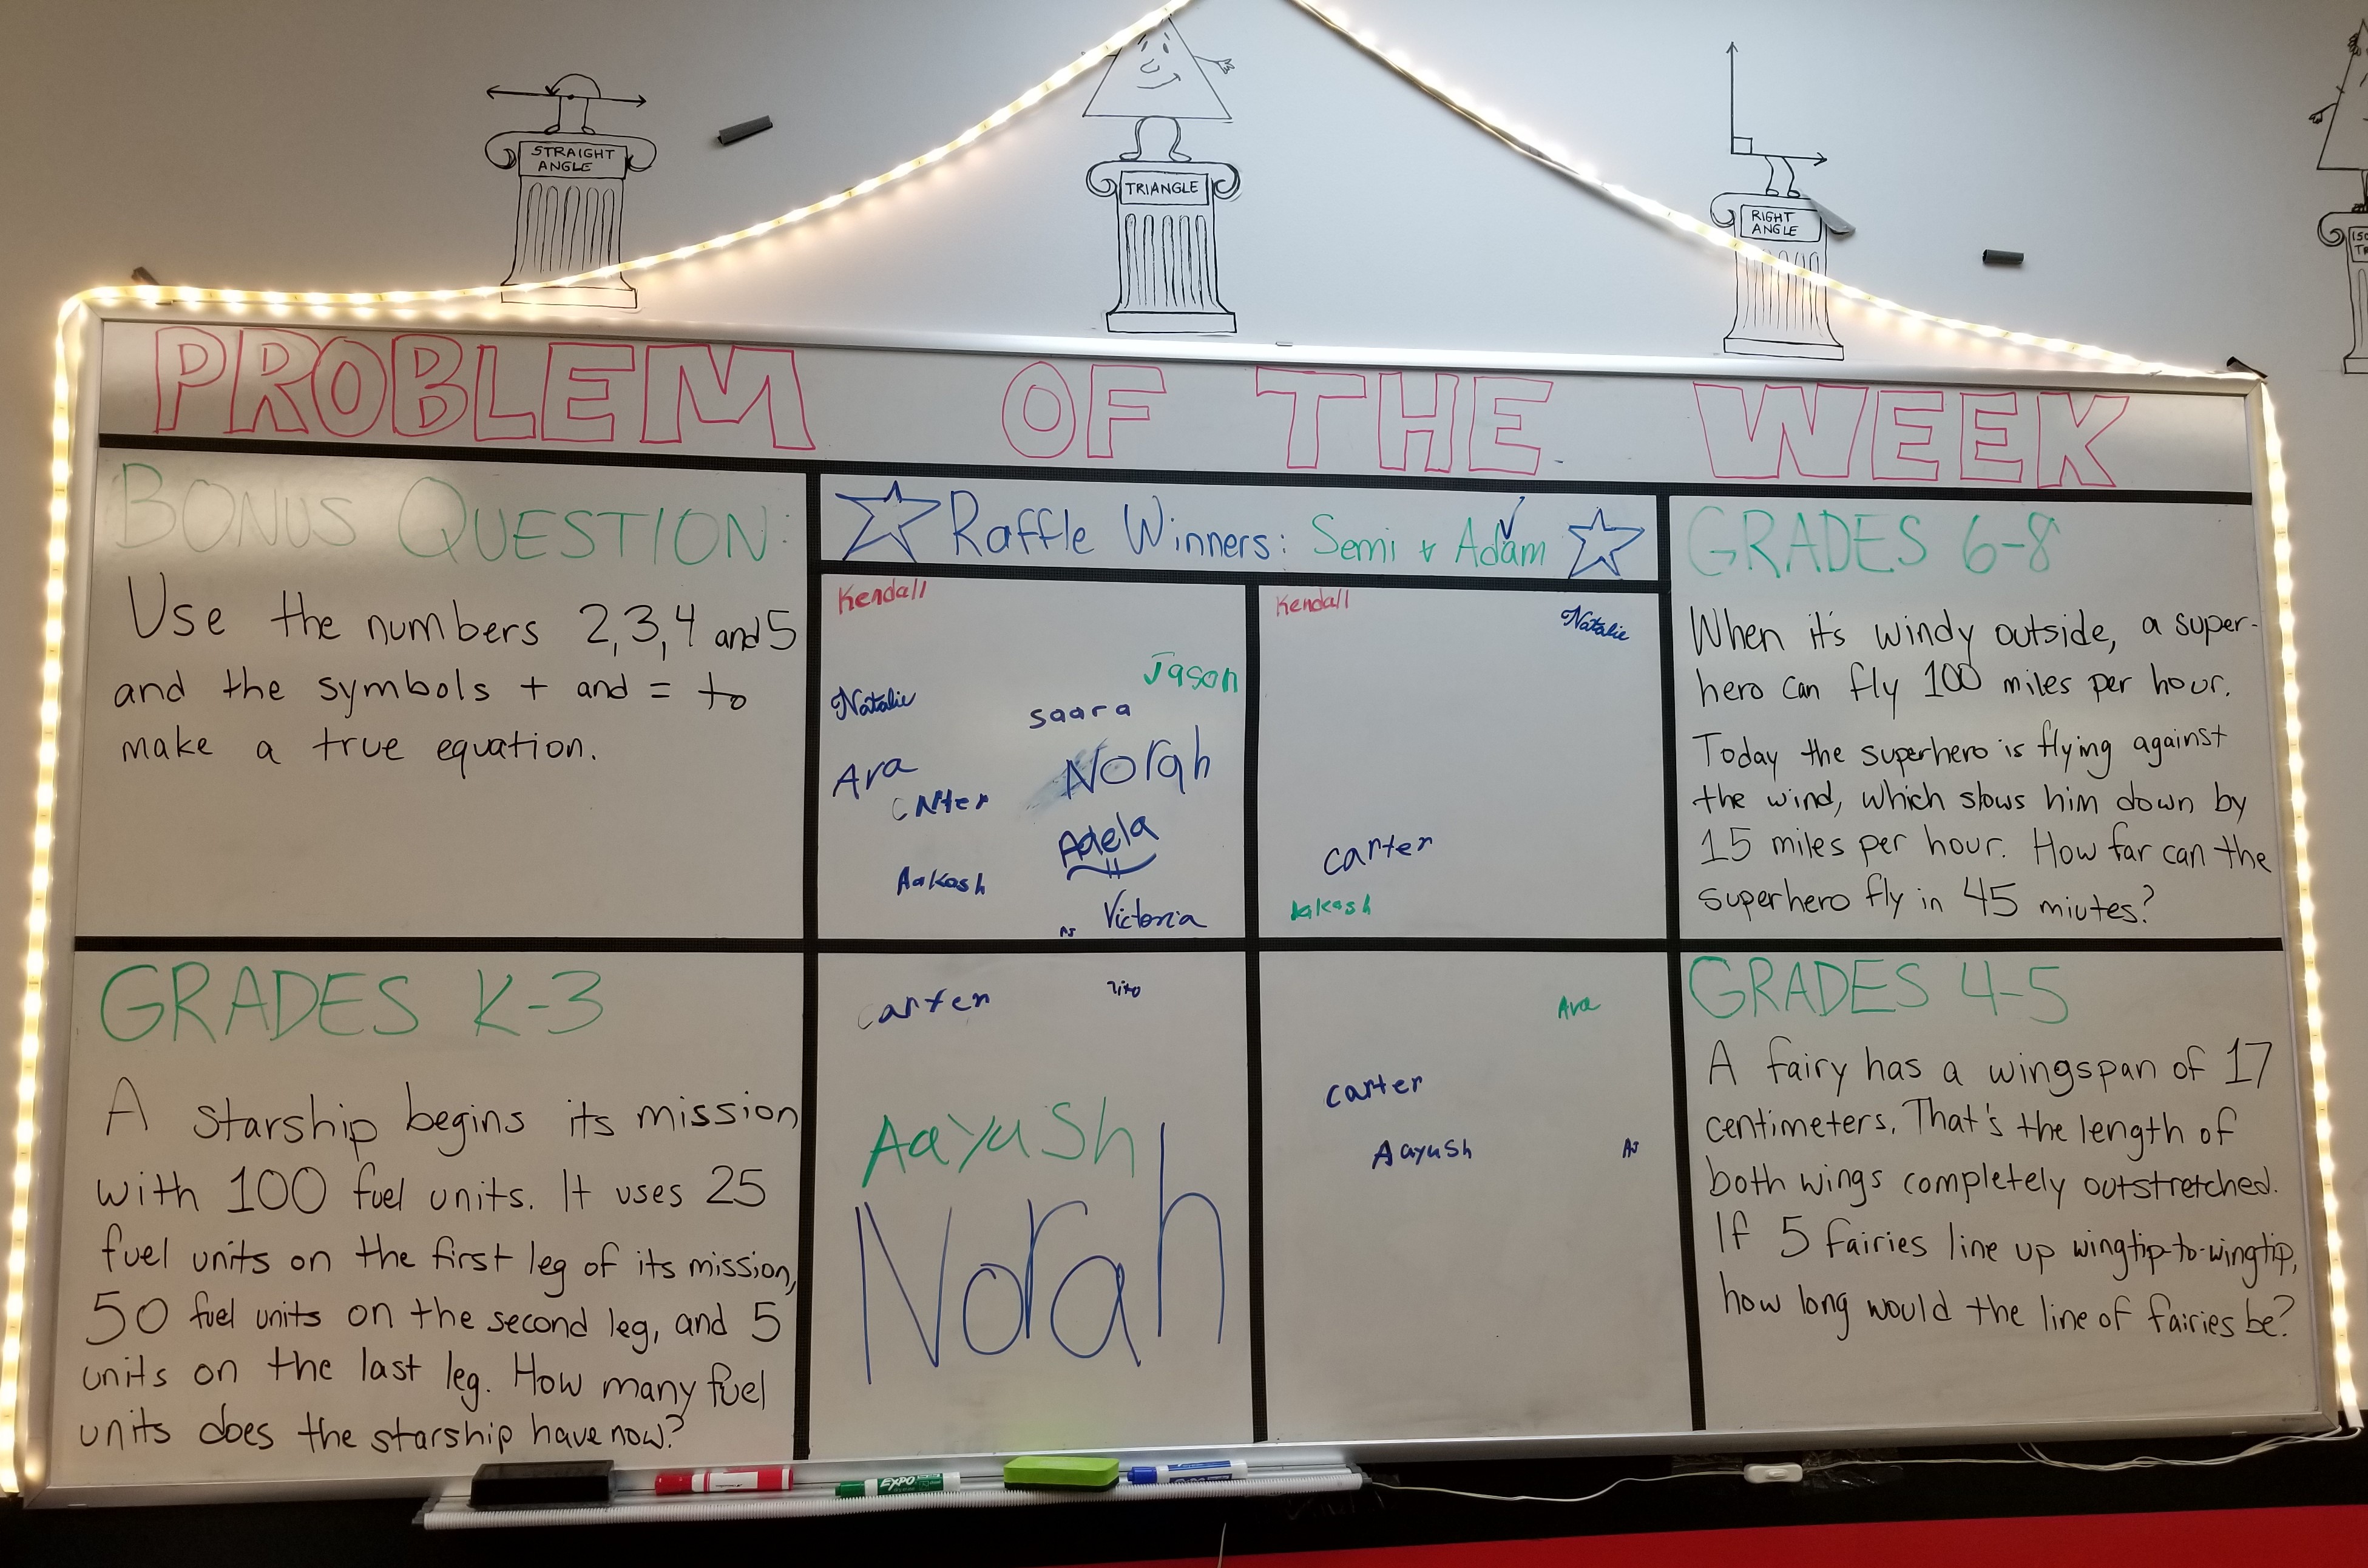 STRAIGHT
ANGLE
TRIANGLE
RIGHT
ANGLE
PROBLEM OF THE WEEK
BONUS QUESTION:
Use the numbers 2,3,4 and 5
and the symbols + and = to
make a true equation.
Raffle Winners: Semi & Adam
Kendall
Jason
Natalie
saara
Ara
Norah
Adela
Aakash
Victoria
AJ
Kendall
Natalie
carter
Aakash
GRADES 6-8
When it's windy outside, a super-
hero can fly 100 miles per hour.
Today the superhero is flying against
the wind, which slows him down by
15 miles per hour. How far can the
superhero fly in 45 miutes?
GRADES K-3
A starship begins its mission
with 100 fuel units. It uses 25
fuel units on the first leg of its mission,
50 fuel units on the second leg, and 5
units on the last leg. How many fuel
units does the starship have now?
carter
Aayush
Norah
Ara
carter
Aayush
AJ
GRADES 4-5
A fairy has a wingspan of 17
centimeters. That's the length of
both wings completely outstretched.
If 5 fairies line up wingtip-to-wingtip,
how long would the line of fairies be?
EXPO